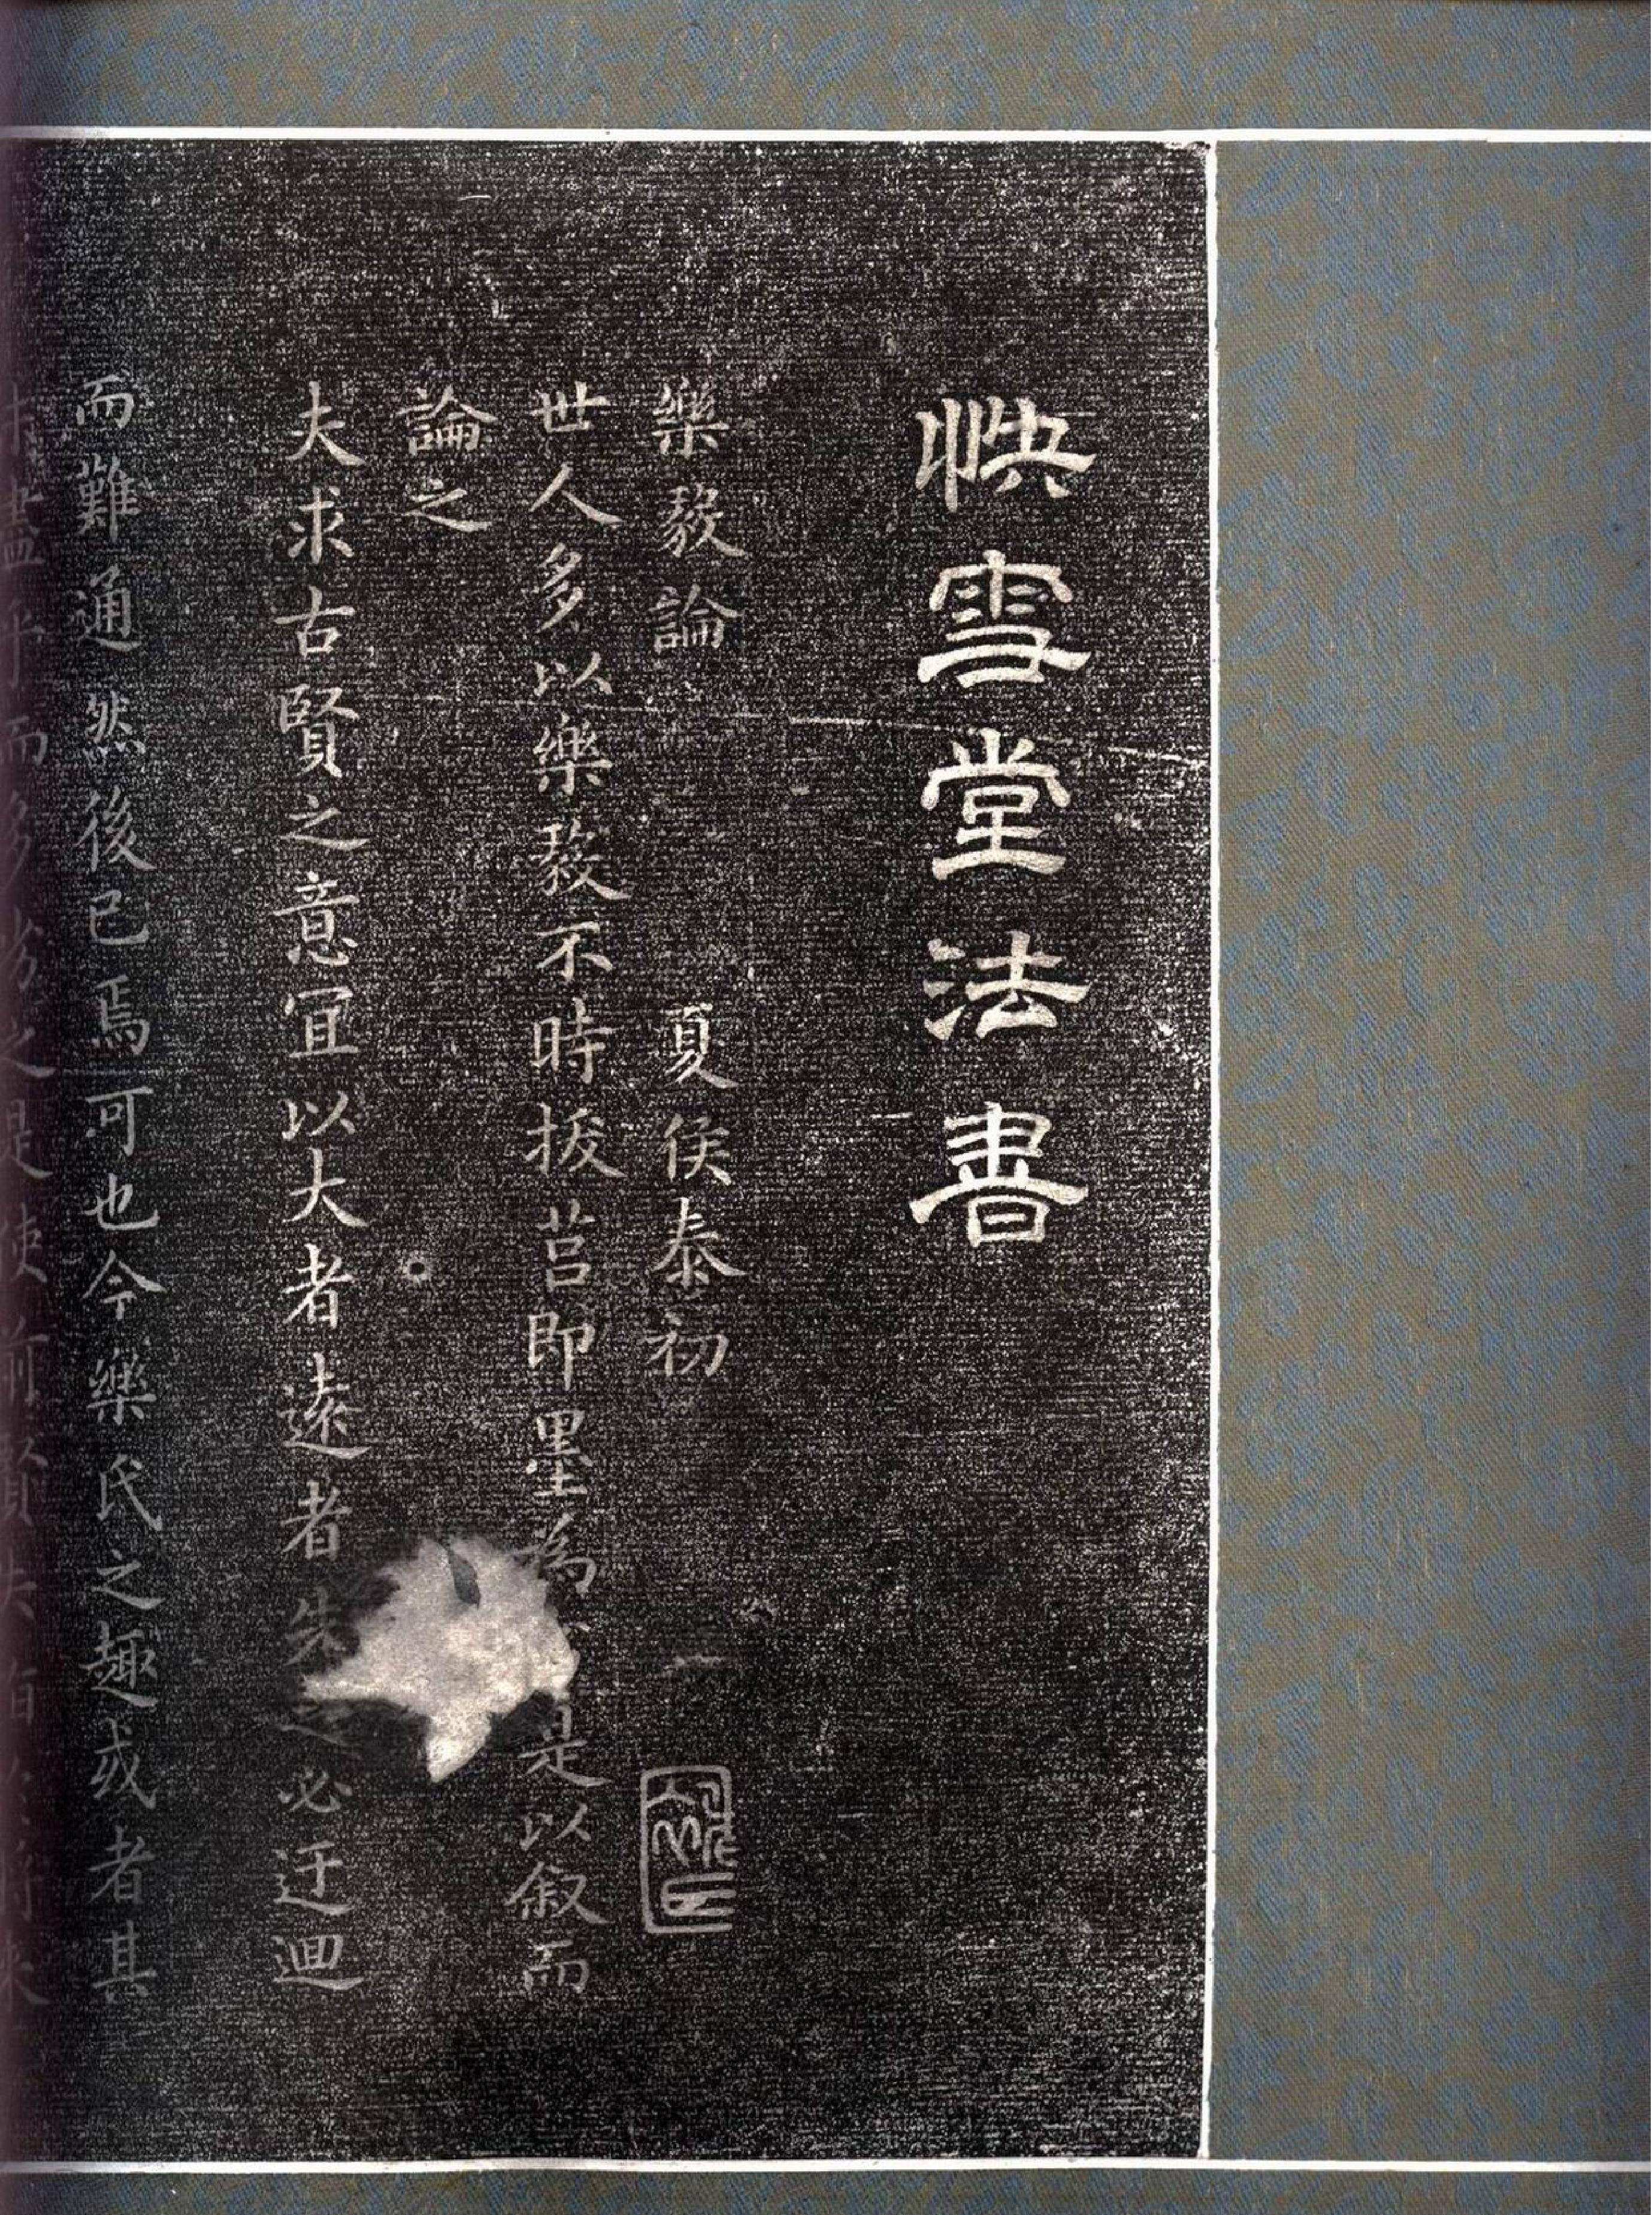 快雪堂法書
樂毅論 夏侯泰初
世人多以樂毅不時拔莒即墨為是以叙而
論之
夫求古賢之意宜以大者遠者先之必迂迴
而難通然後已焉可也今樂氏之趣或者其
未盡乎而多劣之是使前賢失指將來